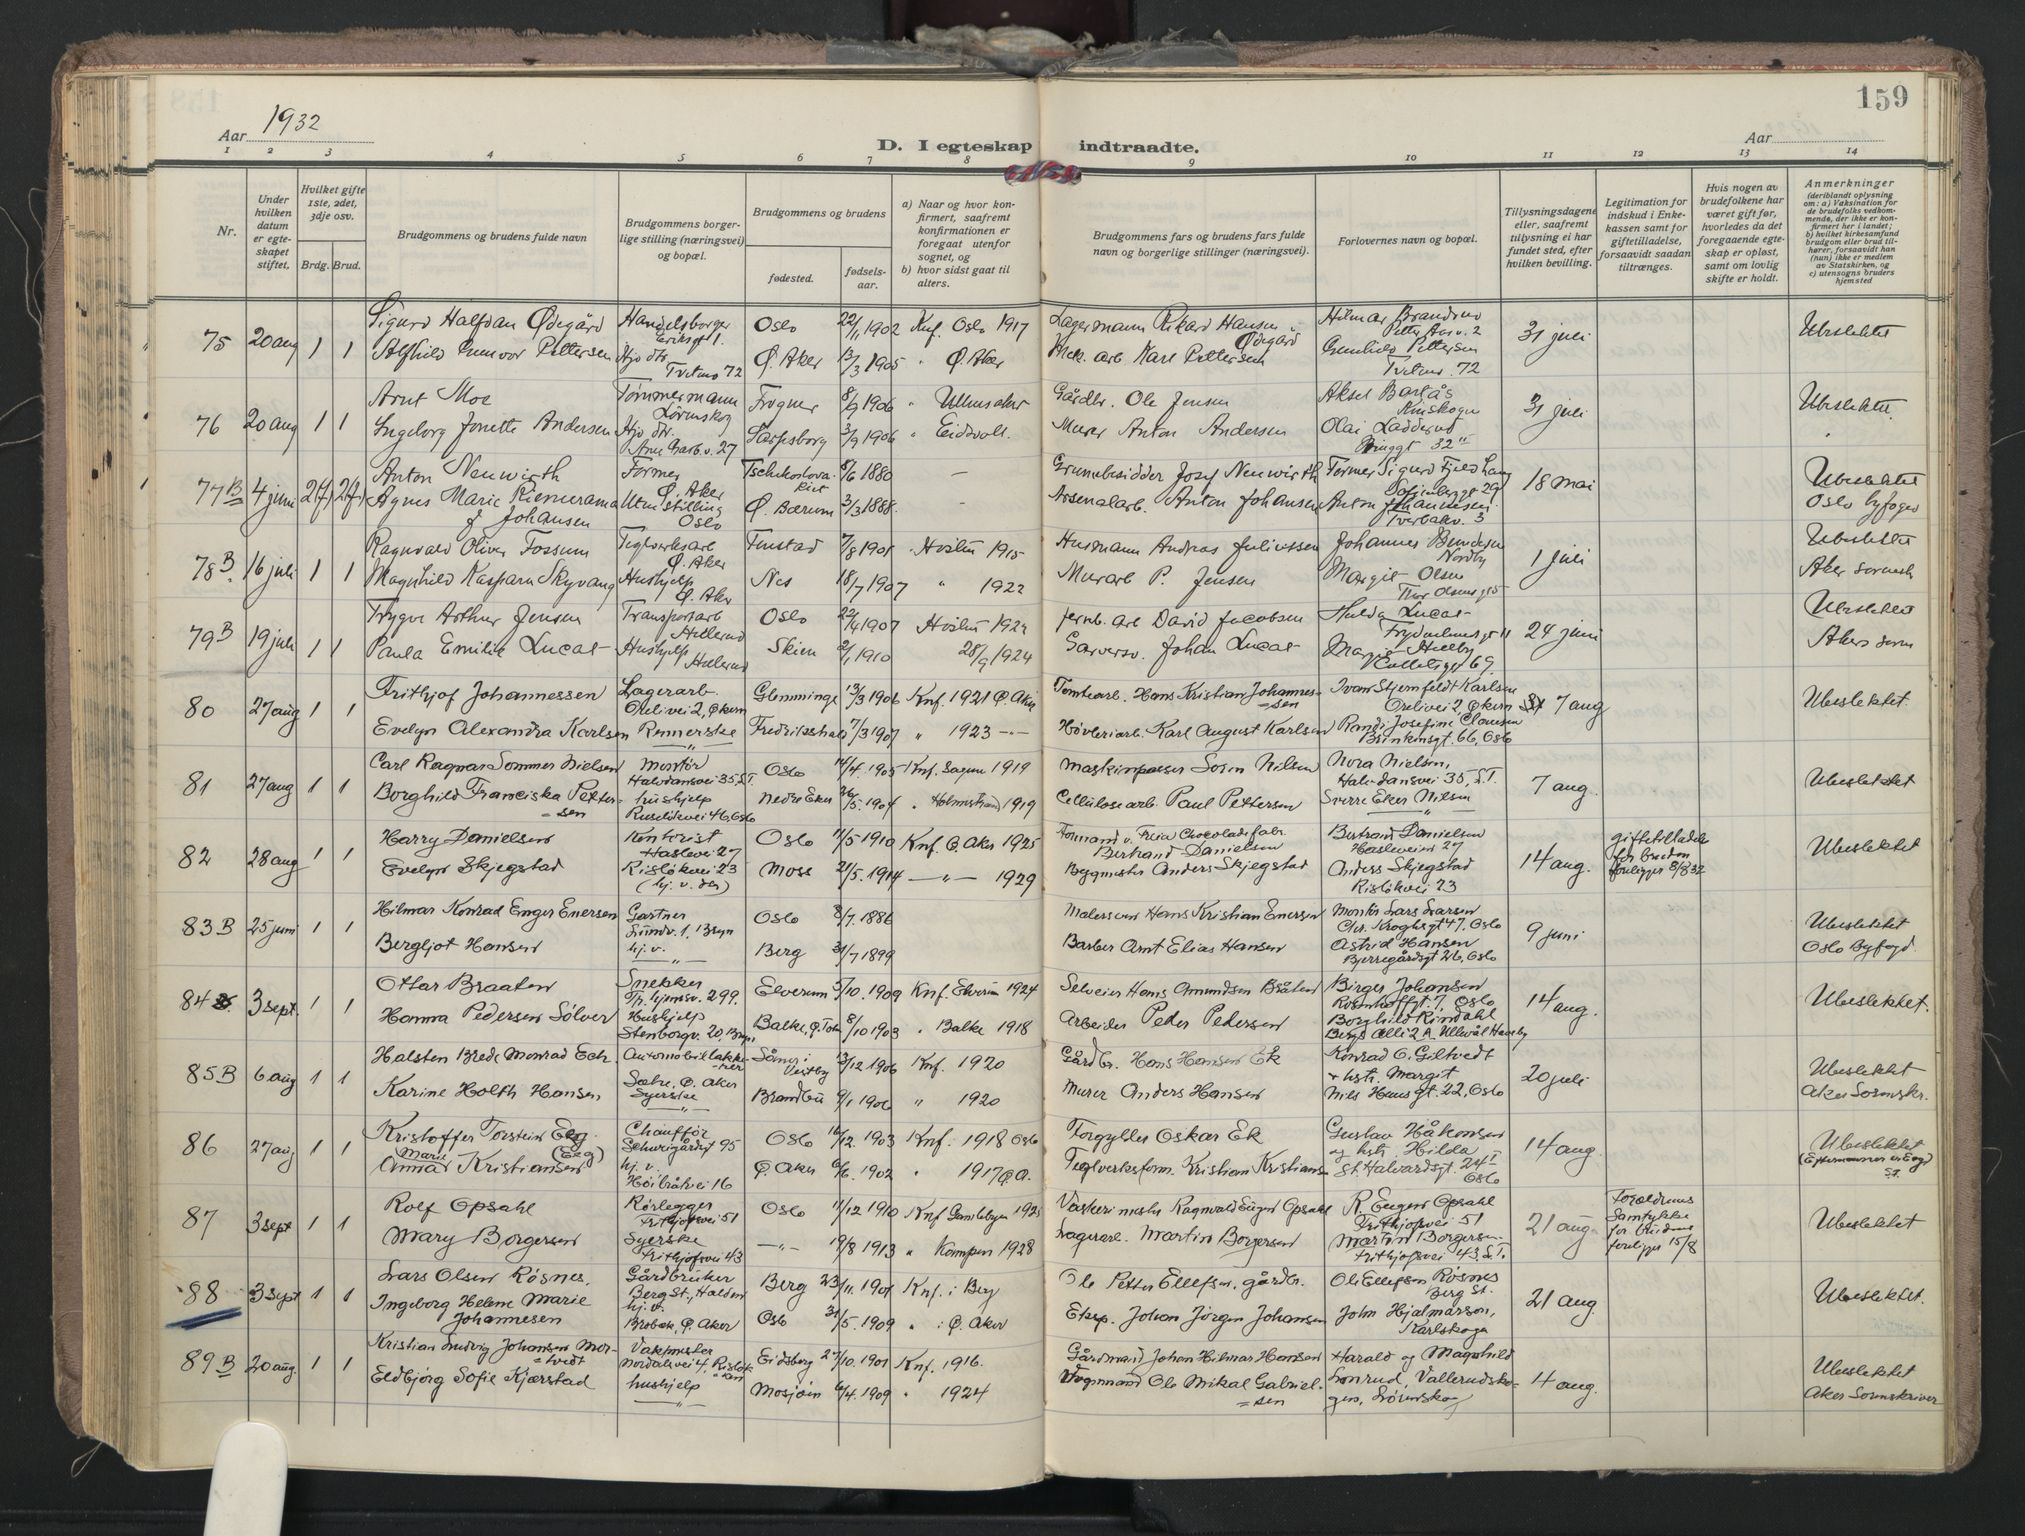 159
Aar 1932
D. I egteskap indtraadte.
Aar
1 2 3 4 5 6 7 8 9 10 11 12 13 14
Nr.
Under hvilken datum er egteskapet stiftet.
Hvilket gifte 1ste, 2det, 3dje osv.
Brdg. Brud.
Brudgommens og brudens fulde navn
Brudgommens borgerlige stilling (næringsvei) og bopæl.
Brudgommens og brudens
fødested.
fødselsaar.
a) Naar og hvor konfirmert, saafremt konfirmationen er foregaat utenfor sognet, og
b) hvor sidst gaat til alters.
Brudgommens fars og brudens fars fulde navn og borgerlige stillinger (næringsvei).
Forlovernes navn og bopæl.
Tillysningsdagene eller, saafremt tillysning ei har fundet sted, efter hvilken bevilling.
Legitimation for indskud i Enkekassen samt for giftetilladelse, forsaavidt saadan tiltrænges.
Hvis nogen av brudefolkene har været gift før, hvorledes da det foregaaende egteskap er opløst, samt om lovlig skifte er holdt.
Anmerkninger
(deriblandt oplysning om: a) Vaksination for de brudefolks vedkommende, der ikke er konfirmert her i landet; b) hvilket kirkesamfund brudgom eller brud tilhører, forsaavidt han (hun) ikke er medlem av Statskirken, og c) utensogns bruders hjemsted
75 20 aug 1 1 Sigurd Halfdan Ødegård Handelsborger Eriksgt 1. Oslo 22/1 1902 Knf. Oslo 1917 Lagermann Rikard Hansen Ødegård Hilmar 31 juli Ubeslektet
Alfhild Gunvor Pettersen Hjv. dtr. Tvetenv 72 Ø. Aker 13/3 1905 " Ø. Aker Mek. arb. Karl Pettersen Gunhild Pettersen Tvetenv. 72
76 20 aug 1 1 Arnt Moe Tømmermann Lørenskog Frogner 8/9 1906 " Ullensaker Gårdbr. Ole Jensen Aksel Bartås 31 juli Ubeslektet.
Ingeborg Jonette Andersen Hjv. dtr. Arne Garb. v. 27 Sarpsborg 3/9 1906 " Eidsvoll. Murer Anton Andersen Olai Ladderud
77 B 4 juni 2(f) 2(f) Anton Neuwirth Former Ø. Aker 8/6 1880 — Grunnbesidder Josef Neuwirth Former Sigurd Fjeldhaug 18 mai Ubeslektet
Agnes Marie Riemerama f. Johansen Uten stilling Oslo Ø. Bærum 3/3 1888. — Arsenalarb. Anton Johansen Anton Johannesen Tverbakv. 3 Oslo byfoged
78 B. 16 juli 1 1 Ragnvald Oliver Fossum Teglverksarb Ø. Aker Finstad 7/8 1901 Hvistin 1915 Husmann Andreas Juliussen Johannes Bendiksen Nordby 1 juli Ubeslektet
Magnhild Kaspara Skyvang Hushjelp Ø. Aker Nes 18/7 1907 " 1922 Murarb P. Jensen Margit Olsen Aker sorensk
79 B 19 juli 1 1 Trygve Arthur Jensen Transportarb Hellerud Oslo 22/4 1907 Jernb. arb David Jacobsen Hulda Lucas 24 juni Ubeslektet
Paula Emilie Lucas Hushjelp Hellerud Skien 2/1 1910 28/9 1924 Garversv. Johan Lucas Akers soren
80 27 aug 1 1 Frithjof Johannessen Lagerarb. Orelivei 2, Økern Glemminge 13/3 1906 Knf. 1921 Ø. Aker Tomtearb. Hans Kristian Johannessen Ivar Stjernfeldt Karlsen Orelivei 2, Økern 7 aug Ubeslektet.
Evelyn Alexandra Karlsen Rennerske " Fredrikshald 7/3 1907 " 1923 —"— Høvleriarb. Karl August Karlsen Randi Josefine Clausen Brinkensgt. 66, Oslo
81 27 aug 1 1 Carl Ragnar Sommer Nielsen Montør Halvdansvei 35, S.T. Oslo 14/4. 1905 Knf. Sagene 1919 Maskinpasser Soren Nilsen Nora Nielsen, Halvdansvei 35, S.T. 7 aug. Ubeslektet
Borghild Franciska Pettersen hushjelp Ruseløkvei 46, Oslo Nedre Eker 26/5. 1904 " Holmestrand 1919 Cellulosearb. Paul Pettersen Sverre Eker Nilsen "
82 28 aug 1 1 Harry Danielsen Kontorist Haslevei 27 Oslo 11/5 1910 Knf. Ø. Aker 1925 Formand v. Freia Chocoladefabr. Bertrand Danielsen Bertrand Danielsen Haslevei 27 14 aug. giftetilladelse for bruden foreligger 8/8 32 Ubeslektet
Evelyn Skjegstad Risløkvei 23 (hj. v. der) Moss 21/5. 1914 —"— 1929 Byggmester Anders Skjegstad Anders Skjegstad Risløkvei 23
83 B 25 juni 1 1 Hilmar Konrad Enger Enersen Gartner Lundv. 1, Bryn Oslo 8/7. 1886 Malersvenn Hans Kristian Enersen Montør Lars Larsen Chr. Kroghsgt 47, Oslo 9 juni Ubeslektet
Bergljot Hansen hj. v. " Berg 31/7 1899 Barber Arnt Elias Hansen Astrid Hansen Bjerregårdsgt 26, Oslo Oslo Byfogd.
84 3 sept. 1 1 Ottar Braaten Snekker Tr.hjemsv. 299. Elverum 5/10. 1909 Knf. Elverum 1924 Selveier Hans Amundsen Bråten Birger Johansen Rosenhoffgt. 7, Oslo 14 aug. Ubeslektet.
Hanna Pedersen Sølver Hushjelp Stenborgv. 20, Bryn Balke, Ø. Toten 8/10 1903 " Balke 1918 Arbeider Peder Pedersen Borghild Rindahl Bergs Allé 2 A. Ullevål Haveby
85 B 6 aug 1 1 Halsten Brede Monrad Eck Automobillakkerer Såner i Vestby 13/12 1906 Knf. 1920 Gårdbr. Hans Hansen Ek Konrad O. Giltvedt 20 juli Ubeslektet
Karine Holth Hansen Sæbe, Ø. Aker Syerske " Brandbu 9/1 1906 " 1920 Murer Anders Hansen & hstr. Margit Nils Huusgt. 22, Oslo Aker Sorenskr.
86 27 aug 1 1 Kristoffer Torstein Eeg. Chaufför Schweigårdsgt 95 Oslo 16/12 1903 Knf. 1918 Oslo Forgyller Oskar Ek Gustav Håkonsen og hstr. Hilda 14 aug. Ubeslektet (Efternavnet er Eeg)
Anna Marie Kristiansen (Eeg) hj. v. Høibråtvei 16 Ø. Aker 6/6. 1902 " 1917 Ø. A. Teglverksform. Kristian Kristians- St. Halvardsgt. 24 I Oslo
87 3 sept 1 1 Rolf Opsahl Rørlegger Frithjofsvei 51 Oslo 11/12 1910 Knf Gamlebyen 1925 Vaskerimester Ragnvald Eugen Opsahl R. Eugen Opsahl Frithjofsvei 51 21 aug Forældrenes Samtykke for bruden foreligger 15/8 Ubeslektet
Mary Borgersen Syerske Frithjofsvei 43 —"— 19/8 1913 " Kampen 1928 Lagerarb. Martin Borgersen Martin Borgersen. Frithjofsvei 43, S.T.
88 3 sept 1 1 Lars Olsen Røsnes. Gårdbruker Berg St., Halden Berg 23/11. 1901 Knf. i Berg Ole Petter Ellefsen, gårdbr. Ole Ellefsen Røsnes Berg St. 21 aug. Ubeslektet.
Ingeborg Helene Marie Johannesen hj. v. Brobek, Ø. Aker Oslo 31/5. 1909 " i Ø. Aker Eksp. Johan Jørgen Johansen John Hjalmarson, Karlskoga
89 B 20 aug. 1 1 Kristian Ludvig Johansen Mortvedt Vakmester Nordalsvei 4, Risløkken Eidsberg 27/10. 1901 Knf. 1916. Gårdmand Johan Hilmar Hansen Harald og Magnhild 4 aug. Ubeslektet
Eldbjørg Sofie Kjærstad hushjelp " Mosjøen 6/4. 1909 " 1924 Vognmand Ole Mikal Gabrielsen Lonrud, Vallerudskogen, Lørenskog Aker Sorenskriver